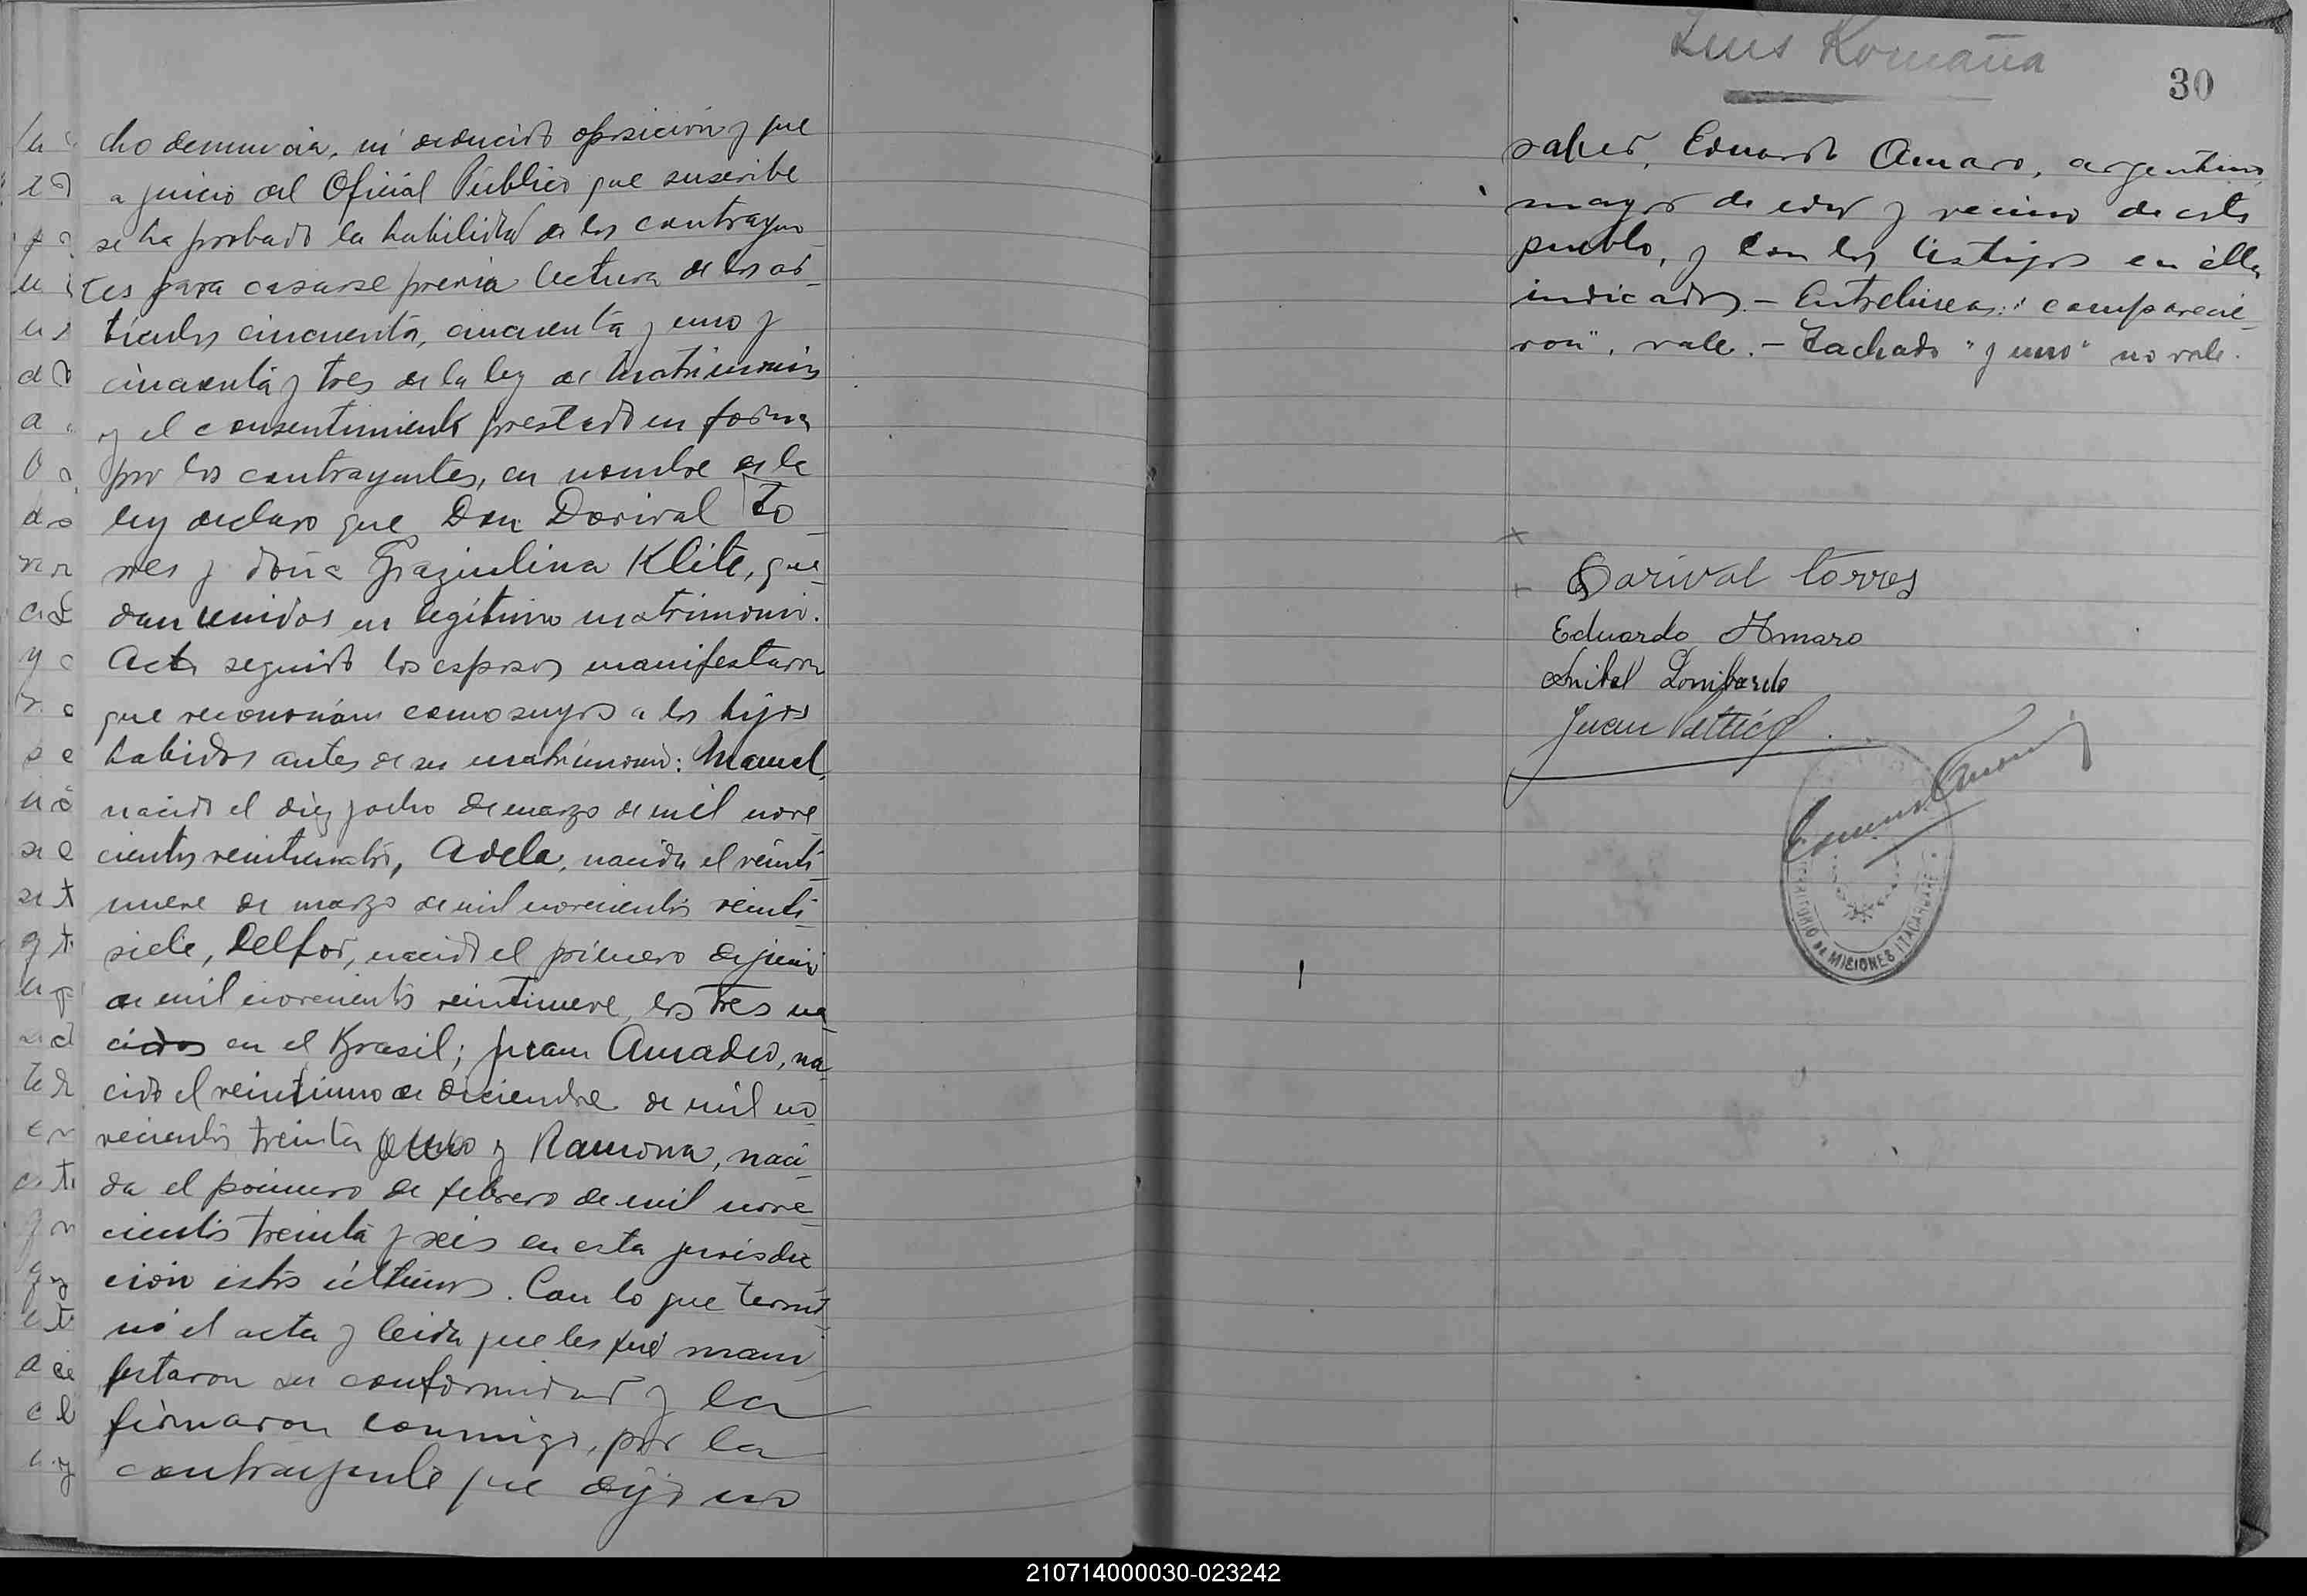 cho denuncia, ni deducido oposición y que
a juicio del Oficial Público que suscribe
se ha probado la habilidad de los contrayen
tes para casarse previa lectura de los ar_
tículos cincuenta, cincuenta y uno y
cincuenta y tres de la ley de Matrimonio
y el consentimiento prestado en forma
por los contrayentes, en nombre de la
ley declaro que Don Dorival To_
rres y doña Graziulina Klite, que_
dan unidos en legítimo matrimonio.
Acto seguido los esposos manifestaron
que reconocían como suyos a los hijos
habidos antes de su matrimonio: Manuel,
nacido el diez y ocho de marzo de mil nove_
cientos veinticuatro, Adela, nacida el veinti_
nueve de marzo de mil novecientos veinti_
siete, Delfor, nacido el primero de junio
de mil novecientos veintinueve, los tres na_
cidos en el Brasil; Juan Amadeo, na_
cido el veintiuno de diciembre de mil no_
vecientos treinta y uno y Ramona, naci_
da el primero de febrero de mil nove_
cientos treinta y seis en esta jurisdic_
ción estos últimos. Con lo que termi_
nó el acta y leida que les fué mani_
festaron su conformidad y la
firmaron conmigo, por la
contrayente que dijo no
Luis Romaña
30
saber, Eduardo Amaro, argentino,
mayor de edad y vecino de este
pueblo, y con los testigos en ella
indicados.- Entrelineas: "comparecie_
ron", vale.- Tachado "y uno" no vale.
Dorival Torres
Eduardo Amaro
Anibal Lombardo
Juan
TERRITORIO DE MISIONES ITACARUARE
210714000030-023242